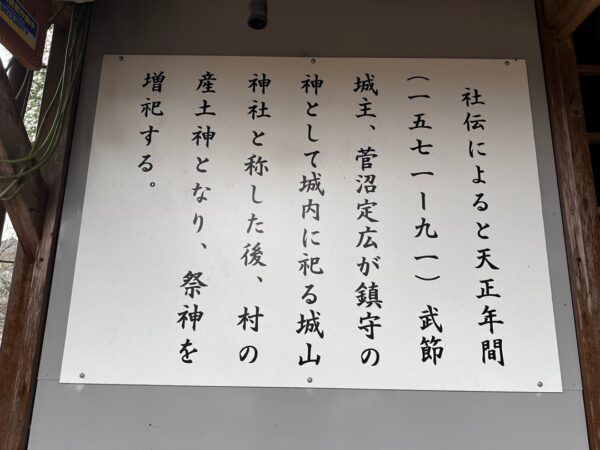 社伝によると天正年間
(一五七一ー九一)武節
城主、菅沼定広が鎮守の
神として城内に祀る城山
神社と称した後、村の
産土神となり、祭神を
増祀する。